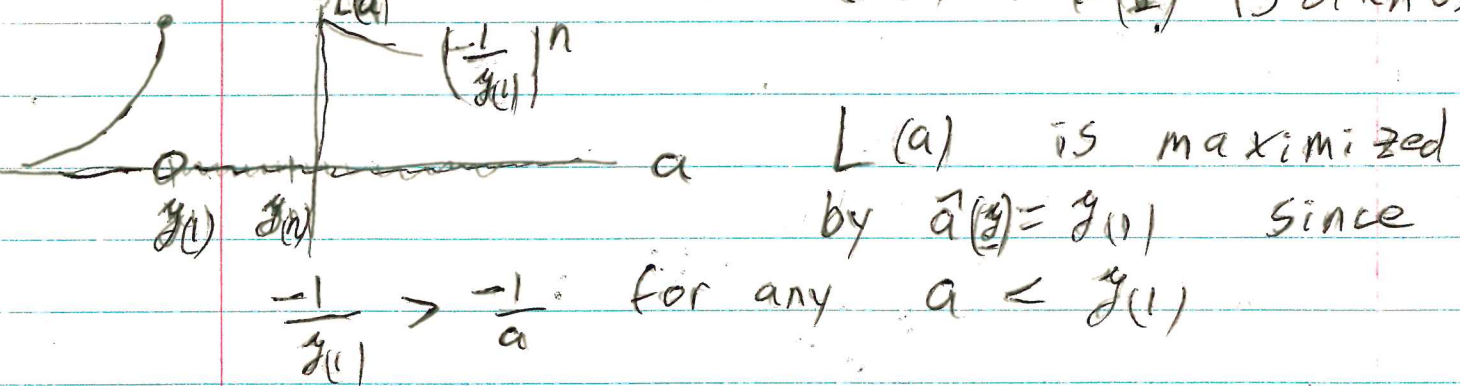 L(a)
(-1/y(1))^n
a
y(1) y(n)
L(a) is maximized
by â(y) = y(1) since
-1/y(1) > -1/a for any a < y(1)